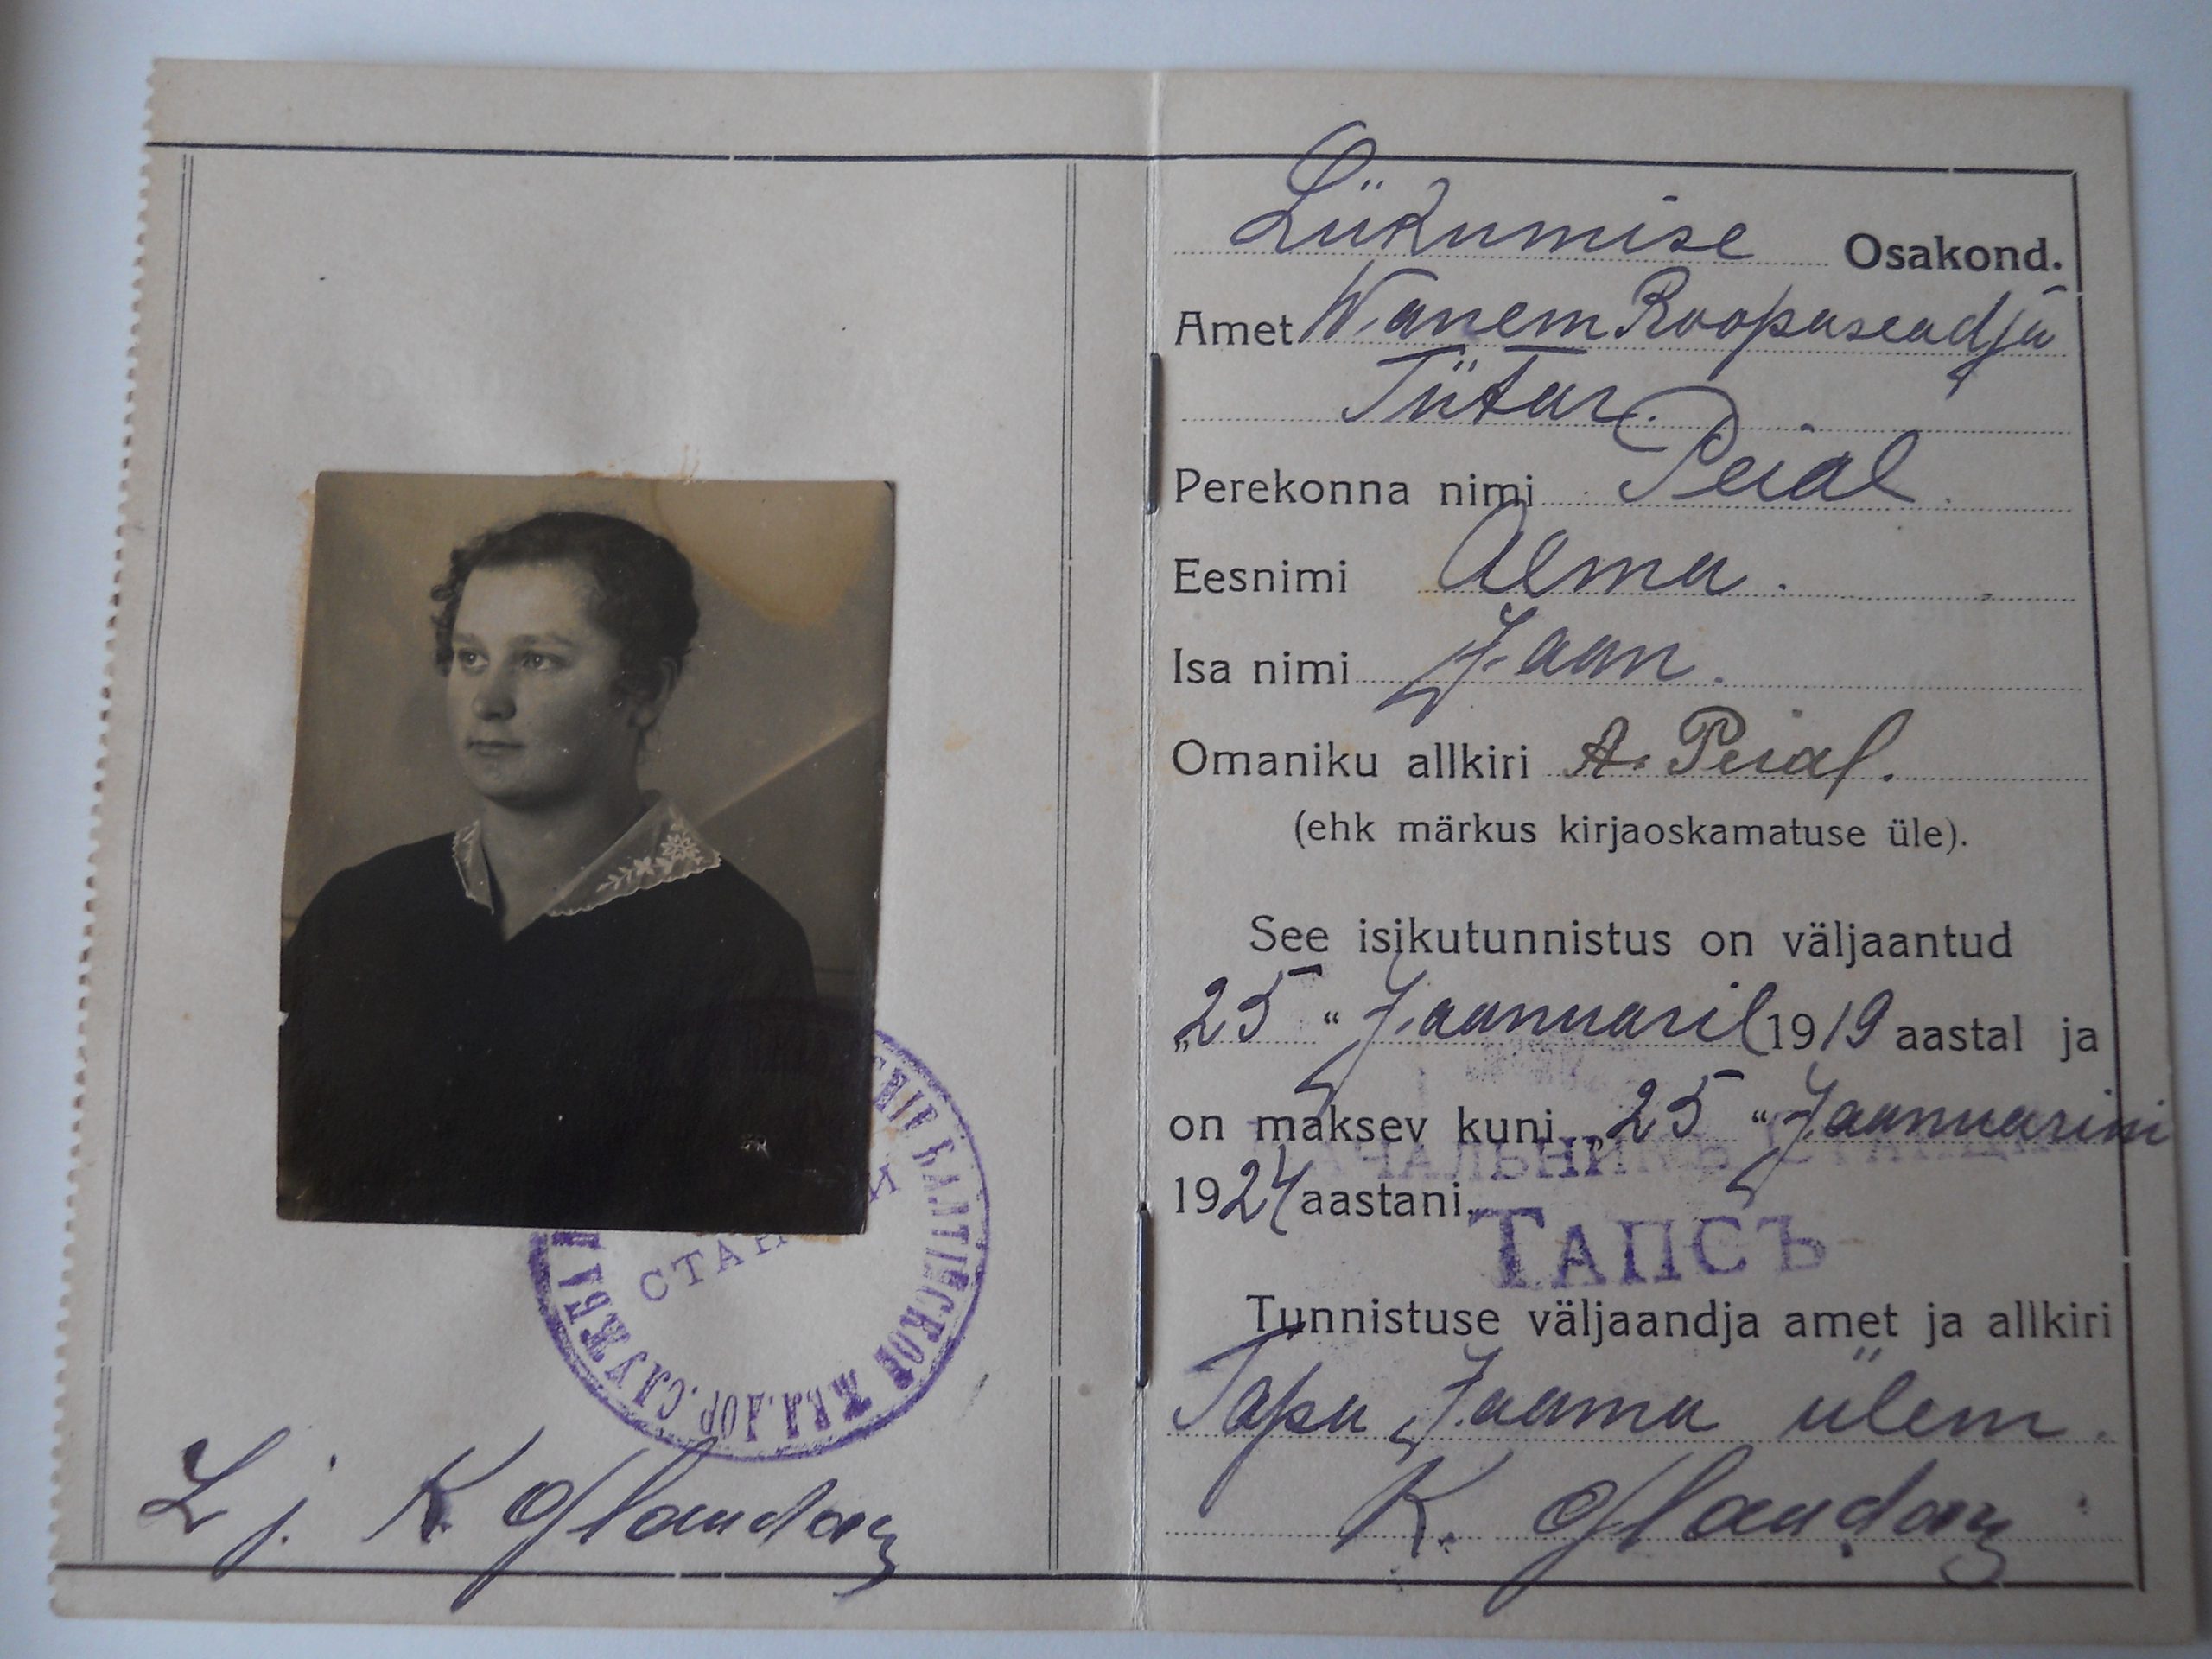 СЛУЖБЫ БАЛТІЙСКОЙ ЖЕЛ. ДОР.
СТАН
L j. K
Liikumise Osakond.
Amet Wanem Roopaseadja
Tütar.
Perekonna nimi Peial.
Eesnimi Alma.
Isa nimi Jaan.
Omaniku allkiri A. Peial.
(ehk märkus kirjaoskamatuse üle).
See isikutunnistus on väljaantud
„25“ Jaanuaril 1919 aastal ja
on maksev kuni „25“ Jaanuarini
НАЧАЛЬНИКЪ СТАНЦІИ
1924 aastani.
ТАПСЪ
Tunnistuse väljaandja amet ja allkiri
Tapa Jaama ülem.
K.